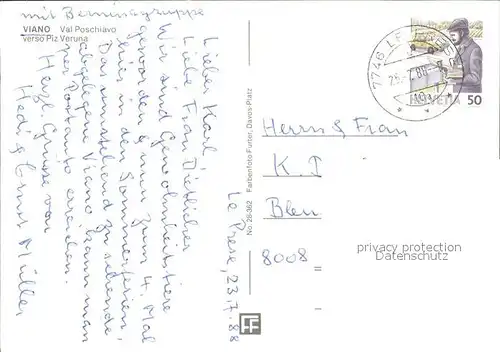 mit Berninagruppe
VIANO Val Poschiavo
verso Piz Veruna
Le Prese, 23.7.88
Lieber Karl,
Liebe Frau Dietlicher
Wir sind Gewohnheitstiere
geworden & nun zum 4. Mal
hier in den Sommerferien.
Das umstehend zu sehende,
abgelegene Viano kann man
per Postauto erreichen.
Herzl. Grüsse von
Hedi & Ernst Müller
No. 28-362 Farbenfoto Furter, Davos-Platz
FF
7746 LE PRESE
HELVETIA 50
Herrn & Frau
K. D
Bleu
8008
privacy protection
Datenschutz